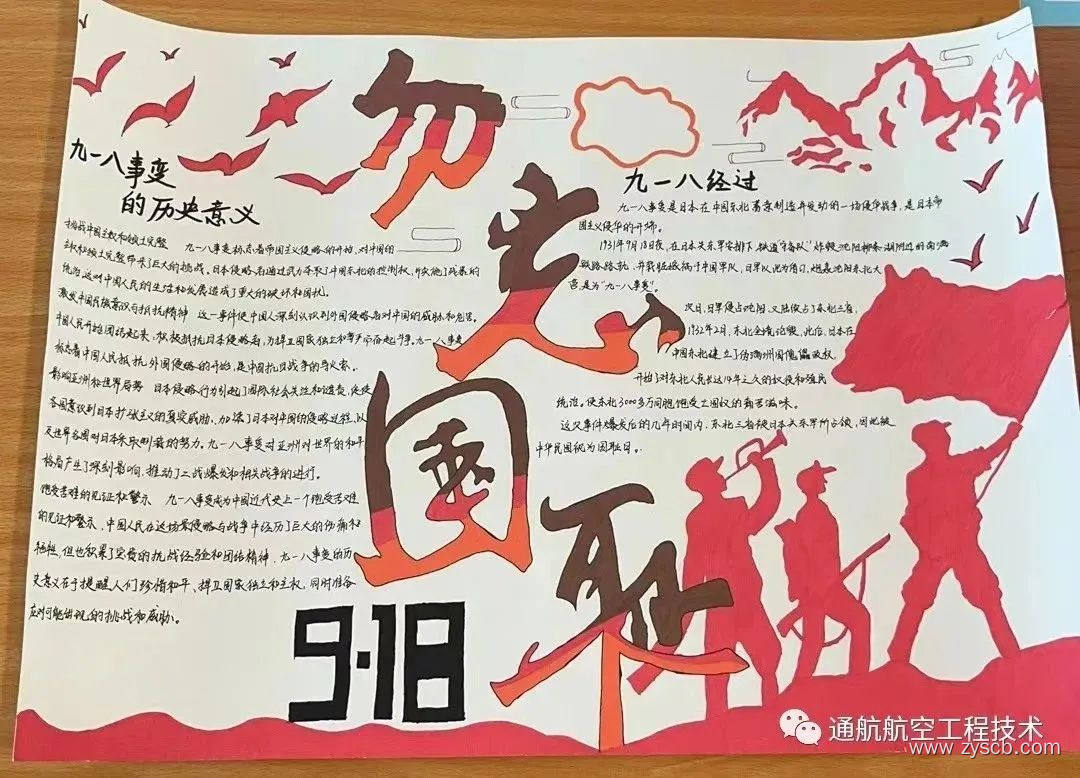 勿忘国耻
九一八事变
的历史意义
挑战中国主权和领土完整 九一八事变标志着帝国主义侵略的开始,对中国的
主权和领土完整带来了巨大的挑战。日本侵略者通过武力夺取了中国东北的控制权,并实施了残暴的
统治,这对中国人民的生活和发展造成了重大的破坏和困扰。
激发中国民族意识与抵抗精神 这一事件使中国人深刻认识到外国侵略者对中国的威胁和危害。
中国人民开始团结起来,积极抵抗日本侵略者,为捍卫国家独立和尊严而奋起斗争。九一八事变
标志着中国人民抵抗外国侵略的开始,是中国抗日战争的导火索。
影响亚洲和世界局势 日本侵略行为引起了国际社会关注和谴责,促使
各国意识到日本扩张主义的真实威胁,加深了日本对中国的侵略过程,以
及世界各国对日本采取制裁的努力。九一八事变对亚洲对世界的和平
格局产生了深刻影响,推动了二战爆发和相关战争的进行。
饱受苦难的见证和警示 九一八事变成为中国近代史上一个饱受苦难
的见证和警示,中国人民在这场侵略与战争中经历了巨大的伤痛和
牺牲,但也积累了宝贵的抗战经验和团结精神,九一八事变的历
史意义在于提醒人们珍惜和平、捍卫国家独立和主权,同时准备
应对可能出现的挑战和威胁。
9·18
九一八经过
九一八事变是日本在中国东北蓄意制造并发动的一场侵华战争,是日本帝
国主义侵华的开端。
1931年9月18日夜,在日本关东军安排下,铁道"守备队"炸毁沈阳柳条湖附近的南满
铁路路轨,并栽赃嫁祸于中国军队,日军以此为借口,炮轰沈阳东北大
营,是为"九一八事变"。
次日,日军侵占沈阳,又陆续侵占了东北三省,
1932年2月,东北全境沦陷。此后,日本在
中国东北建立了伪满洲国傀儡政权,
开始了对东北人民长达14年之久的奴役和殖民
统治。使东北3000多万同胞饱受亡国奴的痛苦滋味。
这次事件爆发后的几年时间内,东北三省被日本关东军所占领,因此被
中华民国视为国耻日。
通航航空工程技术
www.zyscb.com